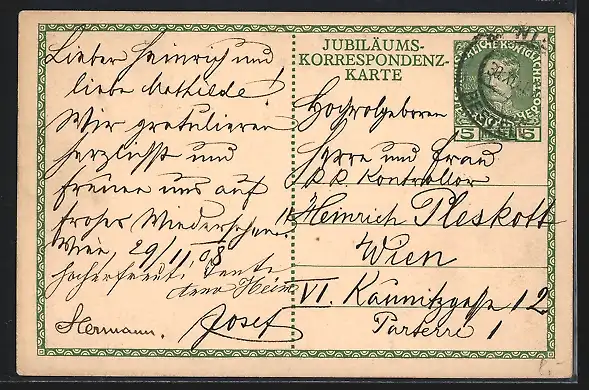 Lieber Heinrich und
liebe Mathilde!
Wir gratulieren
herzlichst und
freuen uns auf
frohes Wiedersehen!
Wien, 29/11.08
hocherfreut. Tante
Heim
Hermann. Josef
JUBILÄUMS-
KORRESPONDENZ-
KARTE
5 5
Hochwolgeboren
Herrn und Frau
k. k. Kontrollor
Heinrich Pleskott
Wien
VI. Kaunitzgasse 12
Parterre 1